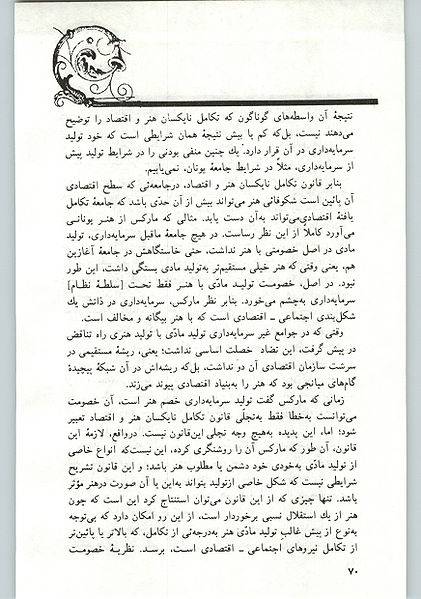 نتیجهٔ آن واسطه‌های گوناگون که تکامل نایکسان هنر و اقتصاد را توضیح
می‌دهند نیست، بل‌که کم یا بیش نتیجهٔ همان شرایطی است که خود تولید
سرمایه‌داری در آن قرار دارد. یك چنین منفی بودنی را در شرایط تولید پیش
از سرمایه‌داری، مثلاً در شرایط جامعهٔ یونان، نمی‌یابیم.
بنابر قانون تکامل نایکسان هنر و اقتصاد، درجامعه‌ئی که سطح اقتصادی
آن پائین است شکوفائی هنر می‌تواند بیش از آن حدّی باشد که جامعهٔ تکامل
یافتهٔ اقتصادی می‌تواند به‌آن دست یابد. مثالی که مارکس از هنر یونانی
می‌آورد کاملاً از این نظر رساست. در هیچ جامعهٔ ماقبل سرمایه‌داری، تولید
مادی در اصل خصومتی با هنر نداشت، حتی خاستگاهش در جامعهٔ آغازین
هم، یعنی وقتی که هنر خیلی مستقیم‌تر به‌تولید مادی بستگی داشت، این طور
نبود. در اصل، خصومت تولید مادّی با هنر فقط تحت [سلطهٔ نظام]
سرمایه‌داری به‌چشم می‌خورد. بنابر نظر مارکس، سرمایه‌داری در ذاتش یك
شکل‌بندی اجتماعی ـ اقتصادی است که با هنر بیگانه و مخالف است.
وقتی که در جوامع غیر سرمایه‌داری تولید مادّی با تولید هنری راه تناقض
در پیش گرفت، این تضاد خصلت اساسی نداشت؛ یعنی، ریشهٔ مستقیمی در
سرشت سازمان اقتصادی آن دو نداشت، بل‌که ریشه‌اش در آن شبکهٔ پیچیدهٔ
گام‌های میانجی بود که هنر را به‌بنیاد اقتصادی پیوند می‌زند.
زمانی که مارکس گفت تولید سرمایه‌داری خصم هنر است، آن خصومت
می‌توانست به‌خطا فقط به‌تجلّی قانون تکامل نایکسان هنر و اقتصاد تعبیر
شود؛ اما، این پدیده به‌هیچ وجه تجلی این‌قانون نیست. درواقع، لازمهٔ این
قانون، آن طور که مارکس آن را روشنگری کرده، این نیست‌که انواع خاصی
از تولید مادّی به‌خودی خود دشمن یا مطلوب هنر باشد؛ و این قانون تشریح
شرایطی نیست که شکل خاصی ازتولید بتواند به‌این یا آن صورت درهنر مؤثر
باشد. تنها چیزی که از این قانون می‌توان استنتاج کرد این است که چون
هنر از یك استقلال نسبی برخوردار است، از این رو امکان دارد که بی‌توجه
به‌نوع از پیش غالبِ تولید مادّی هنر به‌درجه‌ئی از تکامل، که بالاتر یا پائین‌تر
از تکامل نیروهای اجتماعی ـ اقتصادی است، برسد. نظریهٔ خصومت
۷۰